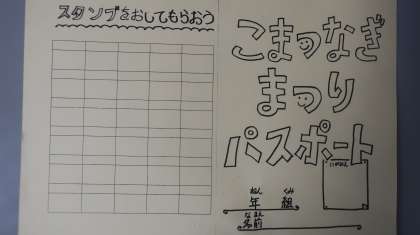 スタンプをおしてもらおう
こまつなぎ
まつり
パスポート
ねん くみ
年 組
なまえ
名前